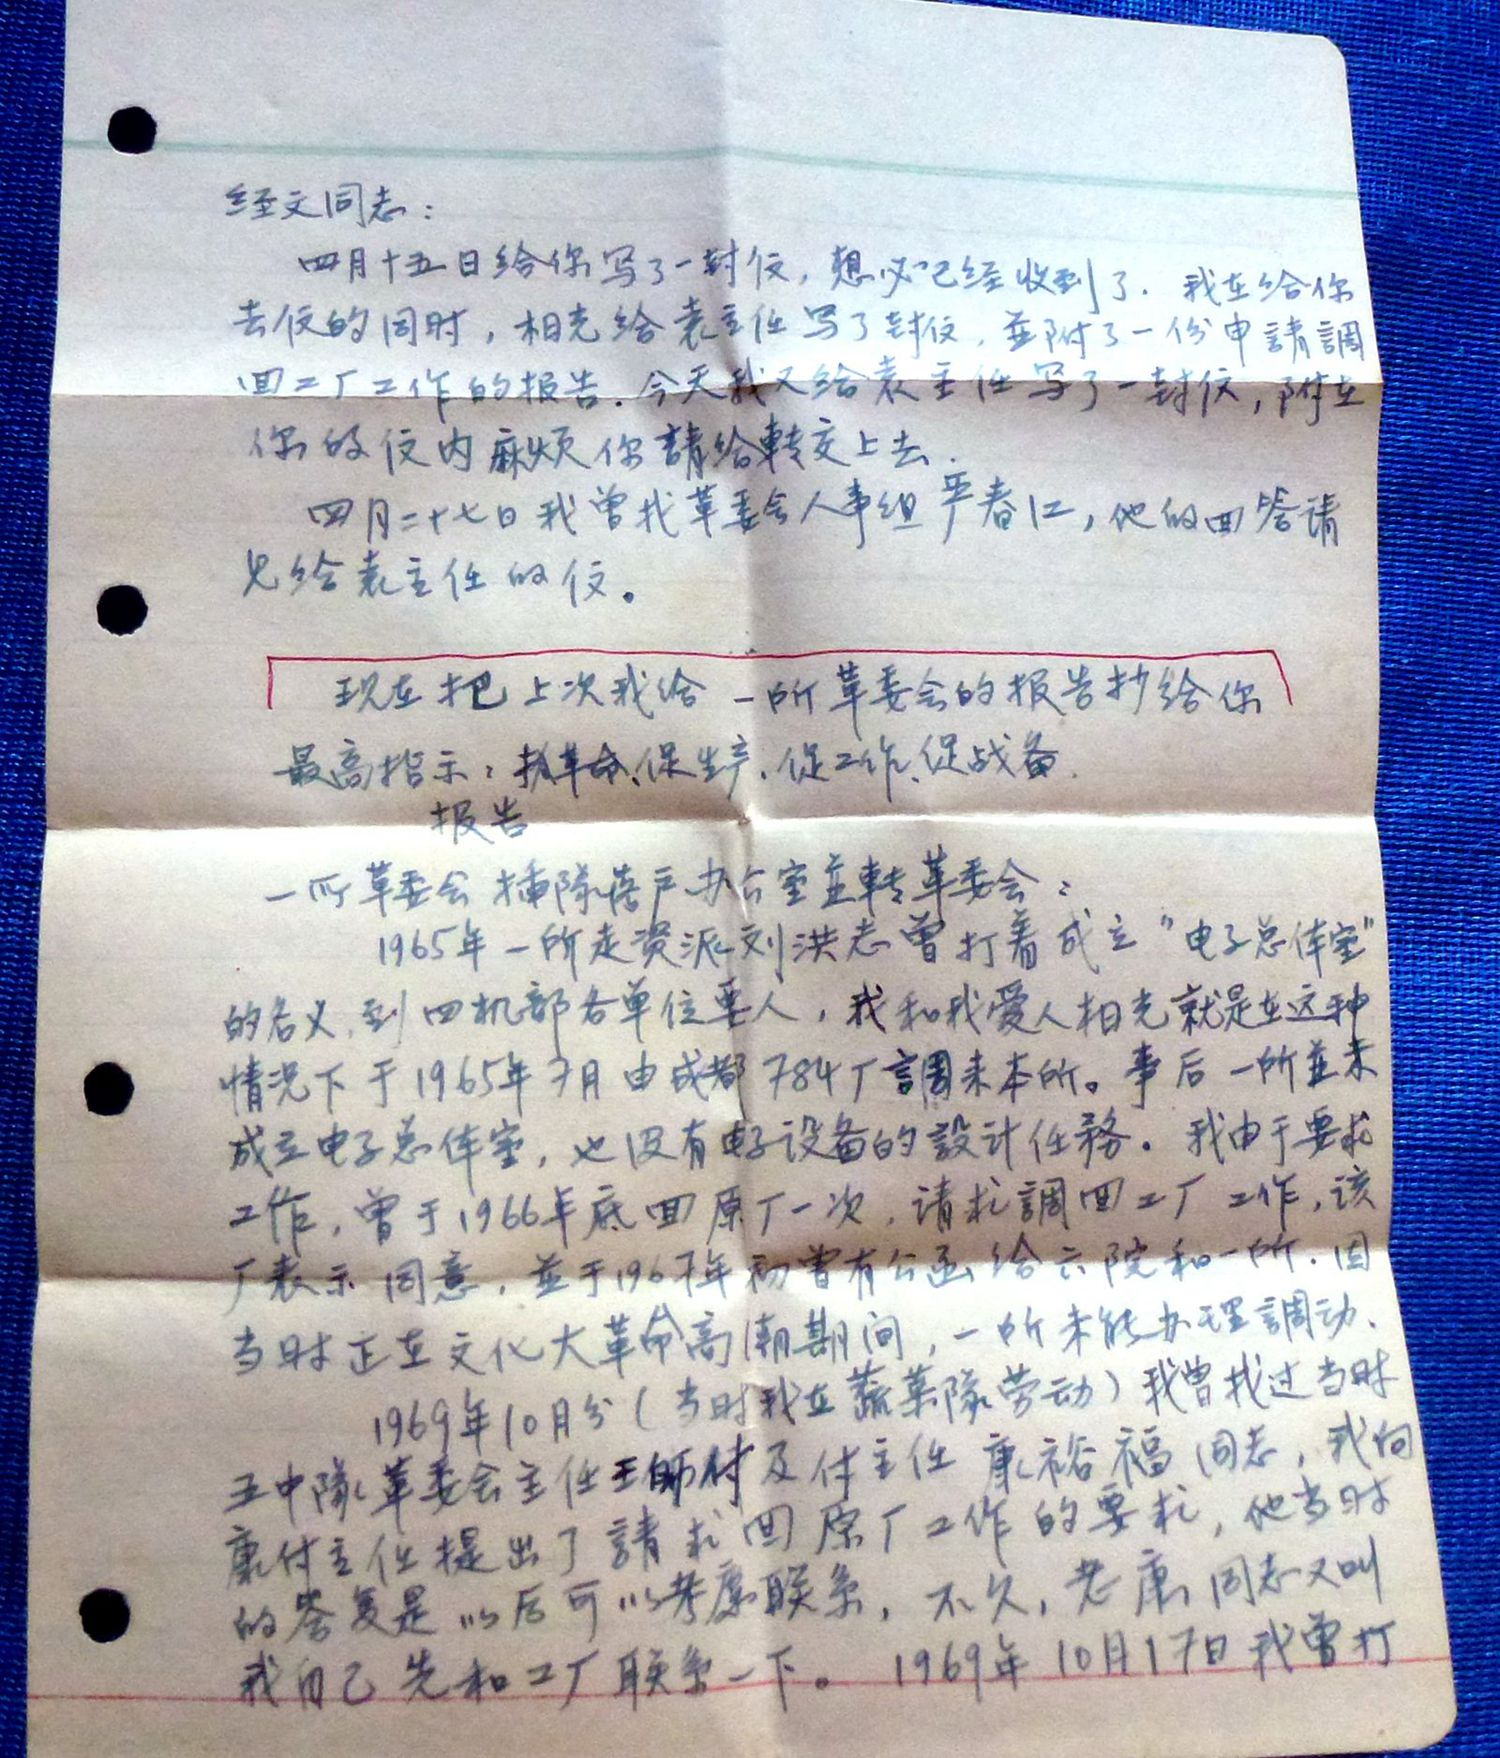 经文同志：
四月十五日给你写了一封信，想必已经收到了．我在给你
去信的同时，相光给袁主任写了封信，並附了一份申請調
回工厂工作的报告．今天我又给袁主任写了一封信，附在
你的信内麻烦你請给轉交上去．
四月二十七日我曾找革委会人事组严春江，他的回答请
见给袁主任的信。
现在把上次我给一所革委会的报告抄给你
最高指示：抓革命、促生产、促工作、促战备．
报告
一所革委会插隊落户办公室並轉革委会：
1965年一所走资派刘洪志曾打着成立"电子总体室"
的名义，到四机部各单位要人，我和我爱人相光就是在这种
情况下于1965年7月由成都784厂調来本所。事后一所並未
成立电子总体室，也没有电子设备的設计任務。我由于要求
工作，曾于1966年底回原厂一次，请求調回工厂工作，该
厂表示同意，並于1967年初曾有公函给六院和一所．因
当时正在文化大革命高潮期间，一所未能办理調动．
1969年10月份（当时我在蔬菜隊劳动）我曾找过当时
五中隊革委会主任王师村及付主任康裕福同志，我向
康付主任提出了請求回原厂工作的要求，他当时
的答复是以后可以考虑联系，不久，老康同志又叫
我自己先和工厂联系一下。1969年10月17日我曾打